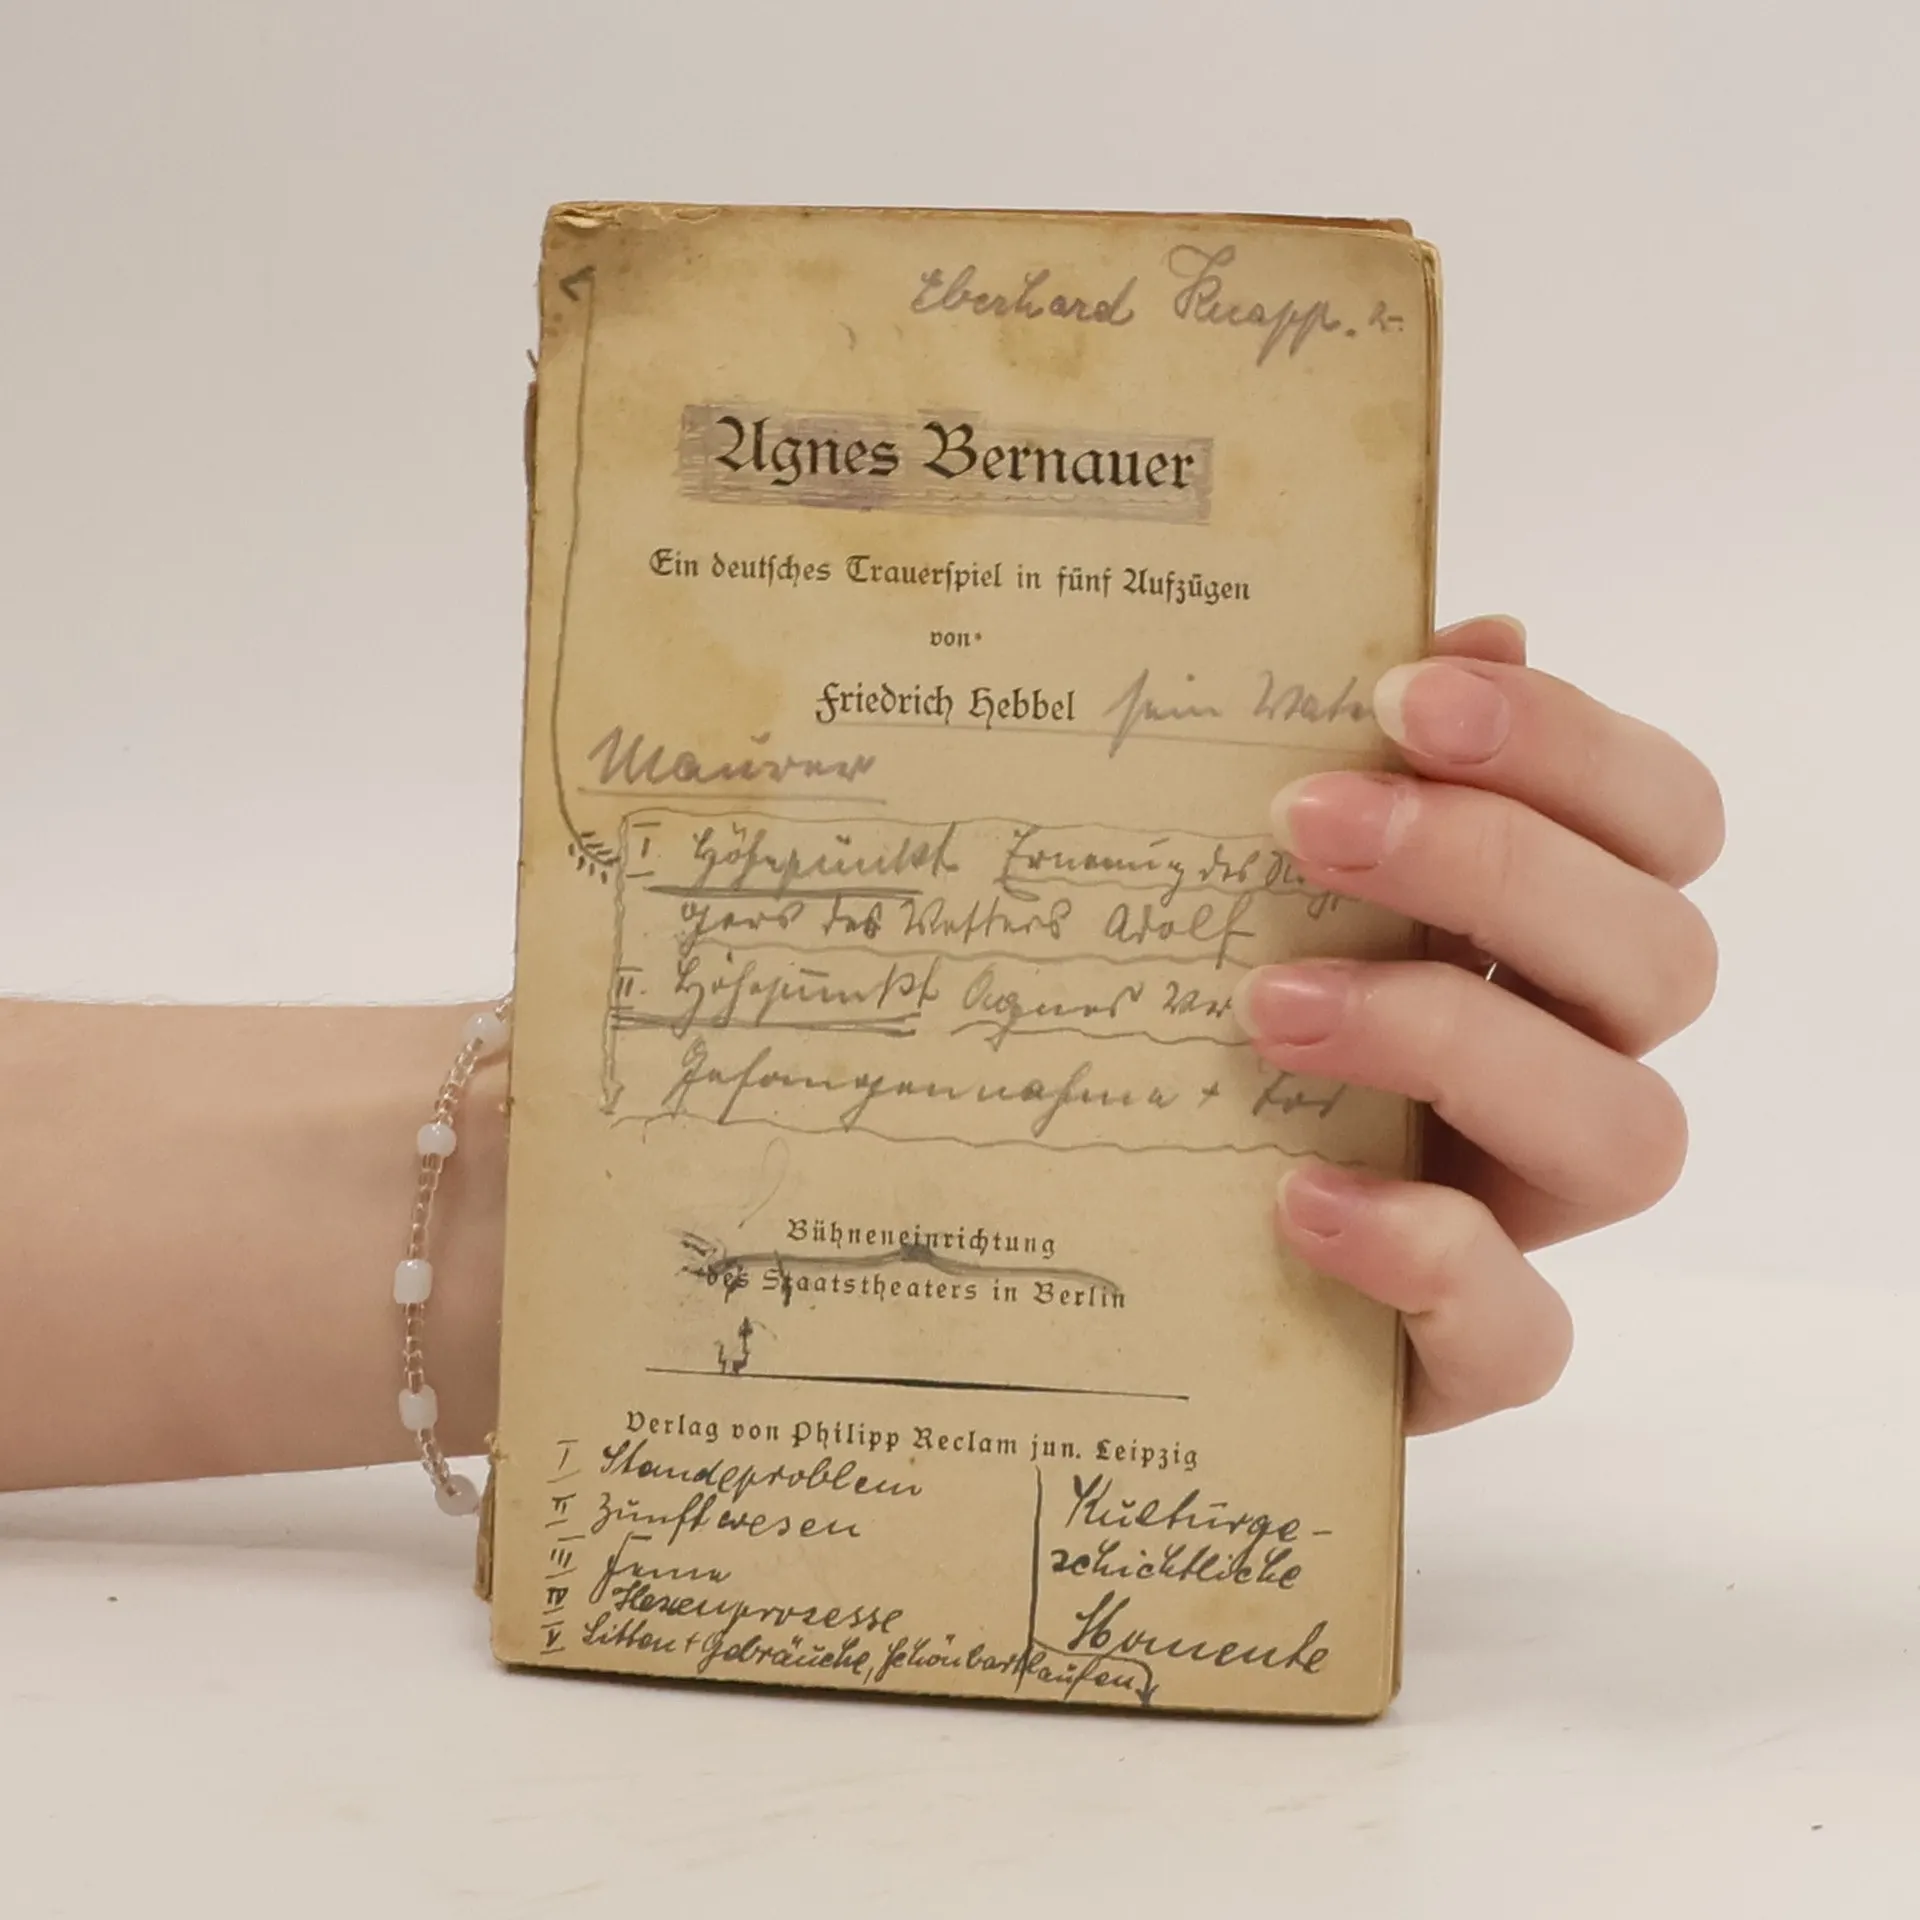 Eberhard Knapp. 2.-
Agnes Bernauer
Ein deutsches Trauerspiel in fünf Aufzügen
von
Friedrich Hebbel sein
Maurer
I. Höhepunkt Ernennung des
des Adolf
II. Höhepunkt Agnes
Gefangennahme + Tod
Bühneneinrichtung
des Staatstheaters in Berlin
Verlag von Philipp Reclam jun. Leipzig
I Standeproblem
II Zunftwesen
III Feme
IV Hexenprozesse
V Sitten + Gebräuche, Schönbartlaufen
Kulturge-
schichtliche
Momente